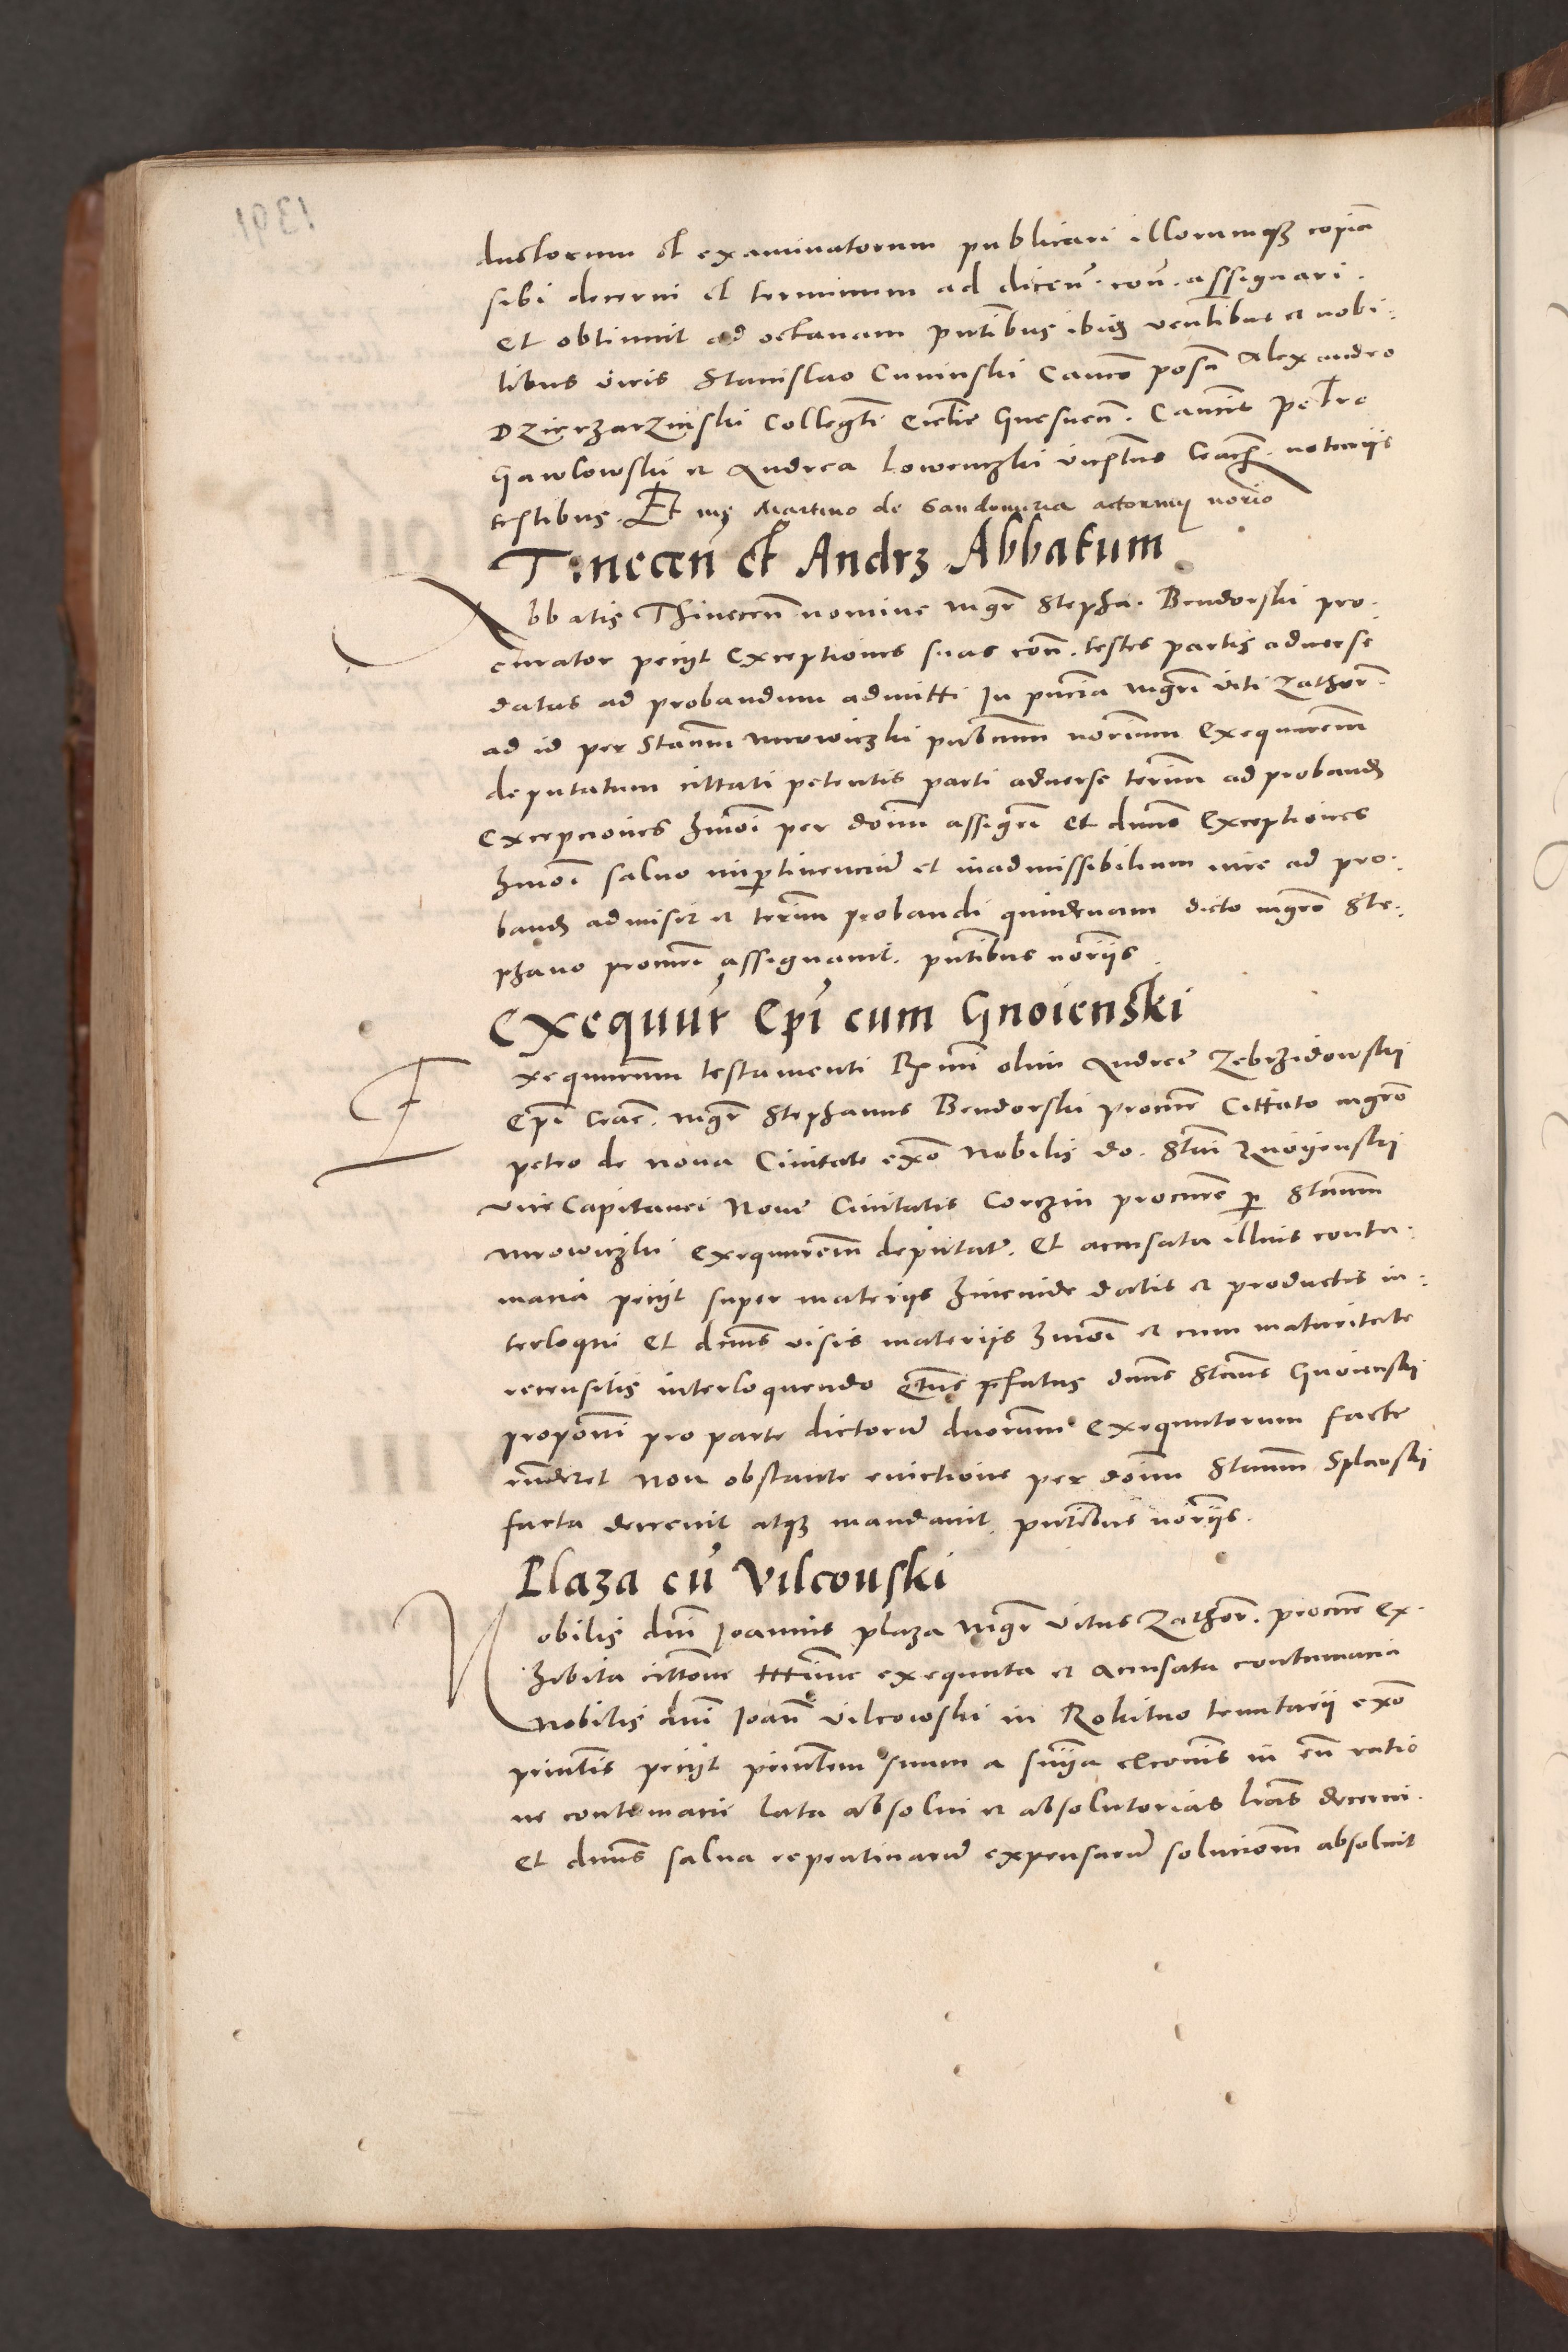 ductorum et examinatorum publicari illorumq3 copiā
sibi decerni et terminum ad dicen̄. con̄. assignari.
et obtinuit ad octavam pn̄tibus ibid3 ven̄libus et nobi:
libus viris Stanislao Cuninski Canco posn̄ Alexandro
Dzierzarzinski Collegn̄ ecclīe Gnesnen̄. Cancis Petro
Gawlowski et Andrea Lowenczki vicepl̄tus Cracn̄. notariis
testibus. Et me Martino de Sandomiria actorum norīo
Tinecen̄ et Andr3 Abbatum
Abbatis Thinecen̄ nomine mgr̄ Stepha. Bendorski pro.
curator peciit exceptiones suas con̄. testes partis adverse
datas ad probandum admitti In pn̄cia mgrī viti Zathor̄.
ad id per Stanm̄ Mrowiczki pub̄cum norīum Exequutorem̄
deputatum cittati petentis parti adverse ter̄num ad proband3
excepciones hmōi per dōnm assigrī et dnūs Exceptiones
hmōi salvo impertinenciū et inadmissibilium iure ad pro:
band3 admisit et ter̄num probandi quindenam dicto mgrō Ste:
phano procurī assignavit. pn̄tibus norīis.
Exequut̄ Epī cum Gnoienski
Exequutorum testamenti R̄mi olim Andreę Zebrzidowski
epī Crac̄. mgr̄ Stephanus Bendorski procur̄ Cittato mgrō
petro de nova Civitate exo Nobilis do. Stani Knoyenski
vice Capitanei Nove Civitatis Corczin procure p Stanm̄
Mrowiczki exequutorem̄ deputat̄. Et accusata illius contu:
macia peciit super materiis hincinde datis et productis in:
terloqui et dnūs visis materiis hmōi et cum maturitate
recensitis interloquendo q̄tūs p̄fatus dn̄us Stan̄us Gnoienski
propōni pro parte dictorū dnorum Exequutorum facte
rn̄deret non obstante evictione per dōnm Stanm̄ Splawski
facta decrevit atq3 mandavit pn̄tibus norīis.
Plaza cū Vilcouski
Nobilis dnī Joannis plaza mgr̄ vitus Zathor̄. procur̄ ex.
hibita cittōne exequuta et accusata contumacia
Nobilis dnī Joan̄ Vilcowski in Rokitno tenutarii exo
prin̄tis peciit prin̄lem suum a sn̄ia exc̄onis in eū ratio
ne contumacie lata absolvi et absolutorias lrās decerni.
et dnūs salva repentinarū expensarū solucionem absolvit